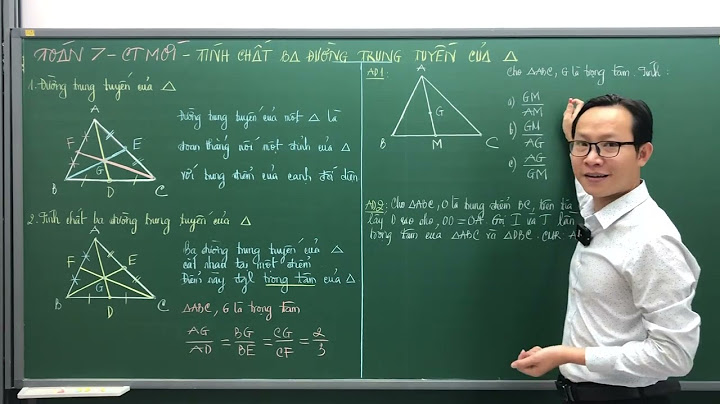 TOÁN 7 - CT MỚI - TÍNH CHẤT BA ĐƯỜNG TRUNG TUYẾN CỦA △
1. Đường trung tuyến của △
A
F
E
G
B
D
C
Đường trung tuyến của một △ là
đoạn thẳng nối một đỉnh của △
với trung điểm của cạnh đối diện
2. Tính chất ba đường trung tuyến của △
A
F
E
G
B
D
C
Ba đường trung tuyến của △
cắt nhau tại một điểm
Điểm này đgl trọng tâm của △
△ABC, G là trọng tâm
AG/AD = BG/BE = CG/CF = 2/3
AD1:
A
G
B
M
C
Cho △ABC, G là trọng tâm. Tính:
a) GM/AM
b) GM/AG
c) AG/GM
AD2: Cho △ABC, D là trung điểm BC, trên tia
lấy D sao cho, OD = OA. Gọi I và J lần
trọng tâm của △ABC và △DBC. CMR: A